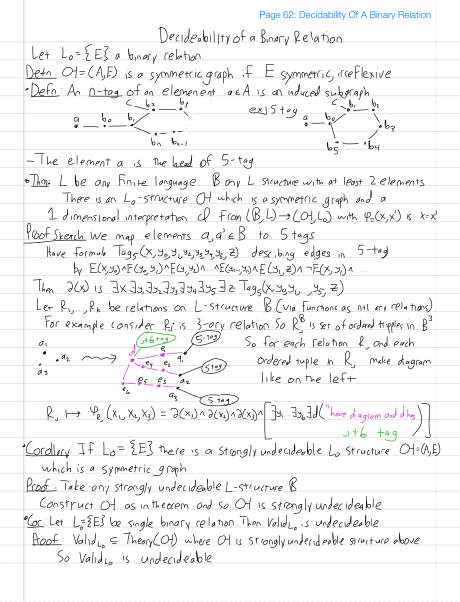 Page 62: Decidability Of A Binary Relation
Decideability of a Binary Relation
Let L₀ = {E} a binary relation
Defn: Ol = (A,E) is a symmetric graph if E symmetric, irreflexive
• Defn: An n-tag of an elemenent a∈A is an induced subgraph
a b₀ b₁ c b₂ b₃ bₙ bₙ₋₁
ex) 5 tag
a b₀ c b₁ b₂ b₃ b₄ b₅
- The element a is the head of 5-tag
• Thm: L be any finite language B any L structure with at least 2 elements
There is an L₀-structure Ol which is a symmetric graph and a
1 dimensional interpretation of from (B,L) → (Ol,L₀) with φ₌(x,x') is x=x'
Proof Sketch: We map elements a,a'∈B to 5 tags
Have formula Tag₅(x,y₀,y₁,y₂,y₃,y₄,y₅,z) describing edges in 5-tag
by E(x,y₀)∧E(y₀,y₁)∧E(y₁,y₂)∧...∧E(y₁,z)∧¬E(x,y₁)∧...
Then ∂(x) is ∃x∃y₁∃y₂∃y₃∃y₄∃y₅∃z Tag₅(x,y₀,y₁,...,y₅,z)
Let R₁,...,Rₖ be relations on L-structure B (via functions as n+1 ary relations)
For example consider Rⱼ is 3-ary relation So Rⱼᴮ is set of ordered tripples in B³
a₁ a₂ a₃
j+6 tag
5-tag
d e₁ a₁
e₄ e₂ 5 tag
e₆ e₅ e₃ a₂
a₃ 5-tag
So for each relation Rⱼ and each
ordered tuple in Rⱼ make diagram
like on the left
Rⱼ ↦ φ (x₁,x₂,x₃) = ∂(x₁)∧∂(x₂)∧∂(x₃)∧[∃y₁..∃y₆∃d("have diagram and d has j+6 tag")]
• Corollary: If L₀ = {E} there is a strongly undecideable L₀ structure Ol=(A,E)
which is a symmetric graph
Proof: Take any strongly undecideable L-structure B
Construct Ol as in theorem and so Ol is strongly undecideable
• Cor: Let L₀={E} be single binary relation. Then Valid_L₀ is undecideable
Proof: Valid_L₀ ⊆ Theory(Ol) where Ol is strongly undecideable structure above
So Valid_L₀ is undecideable